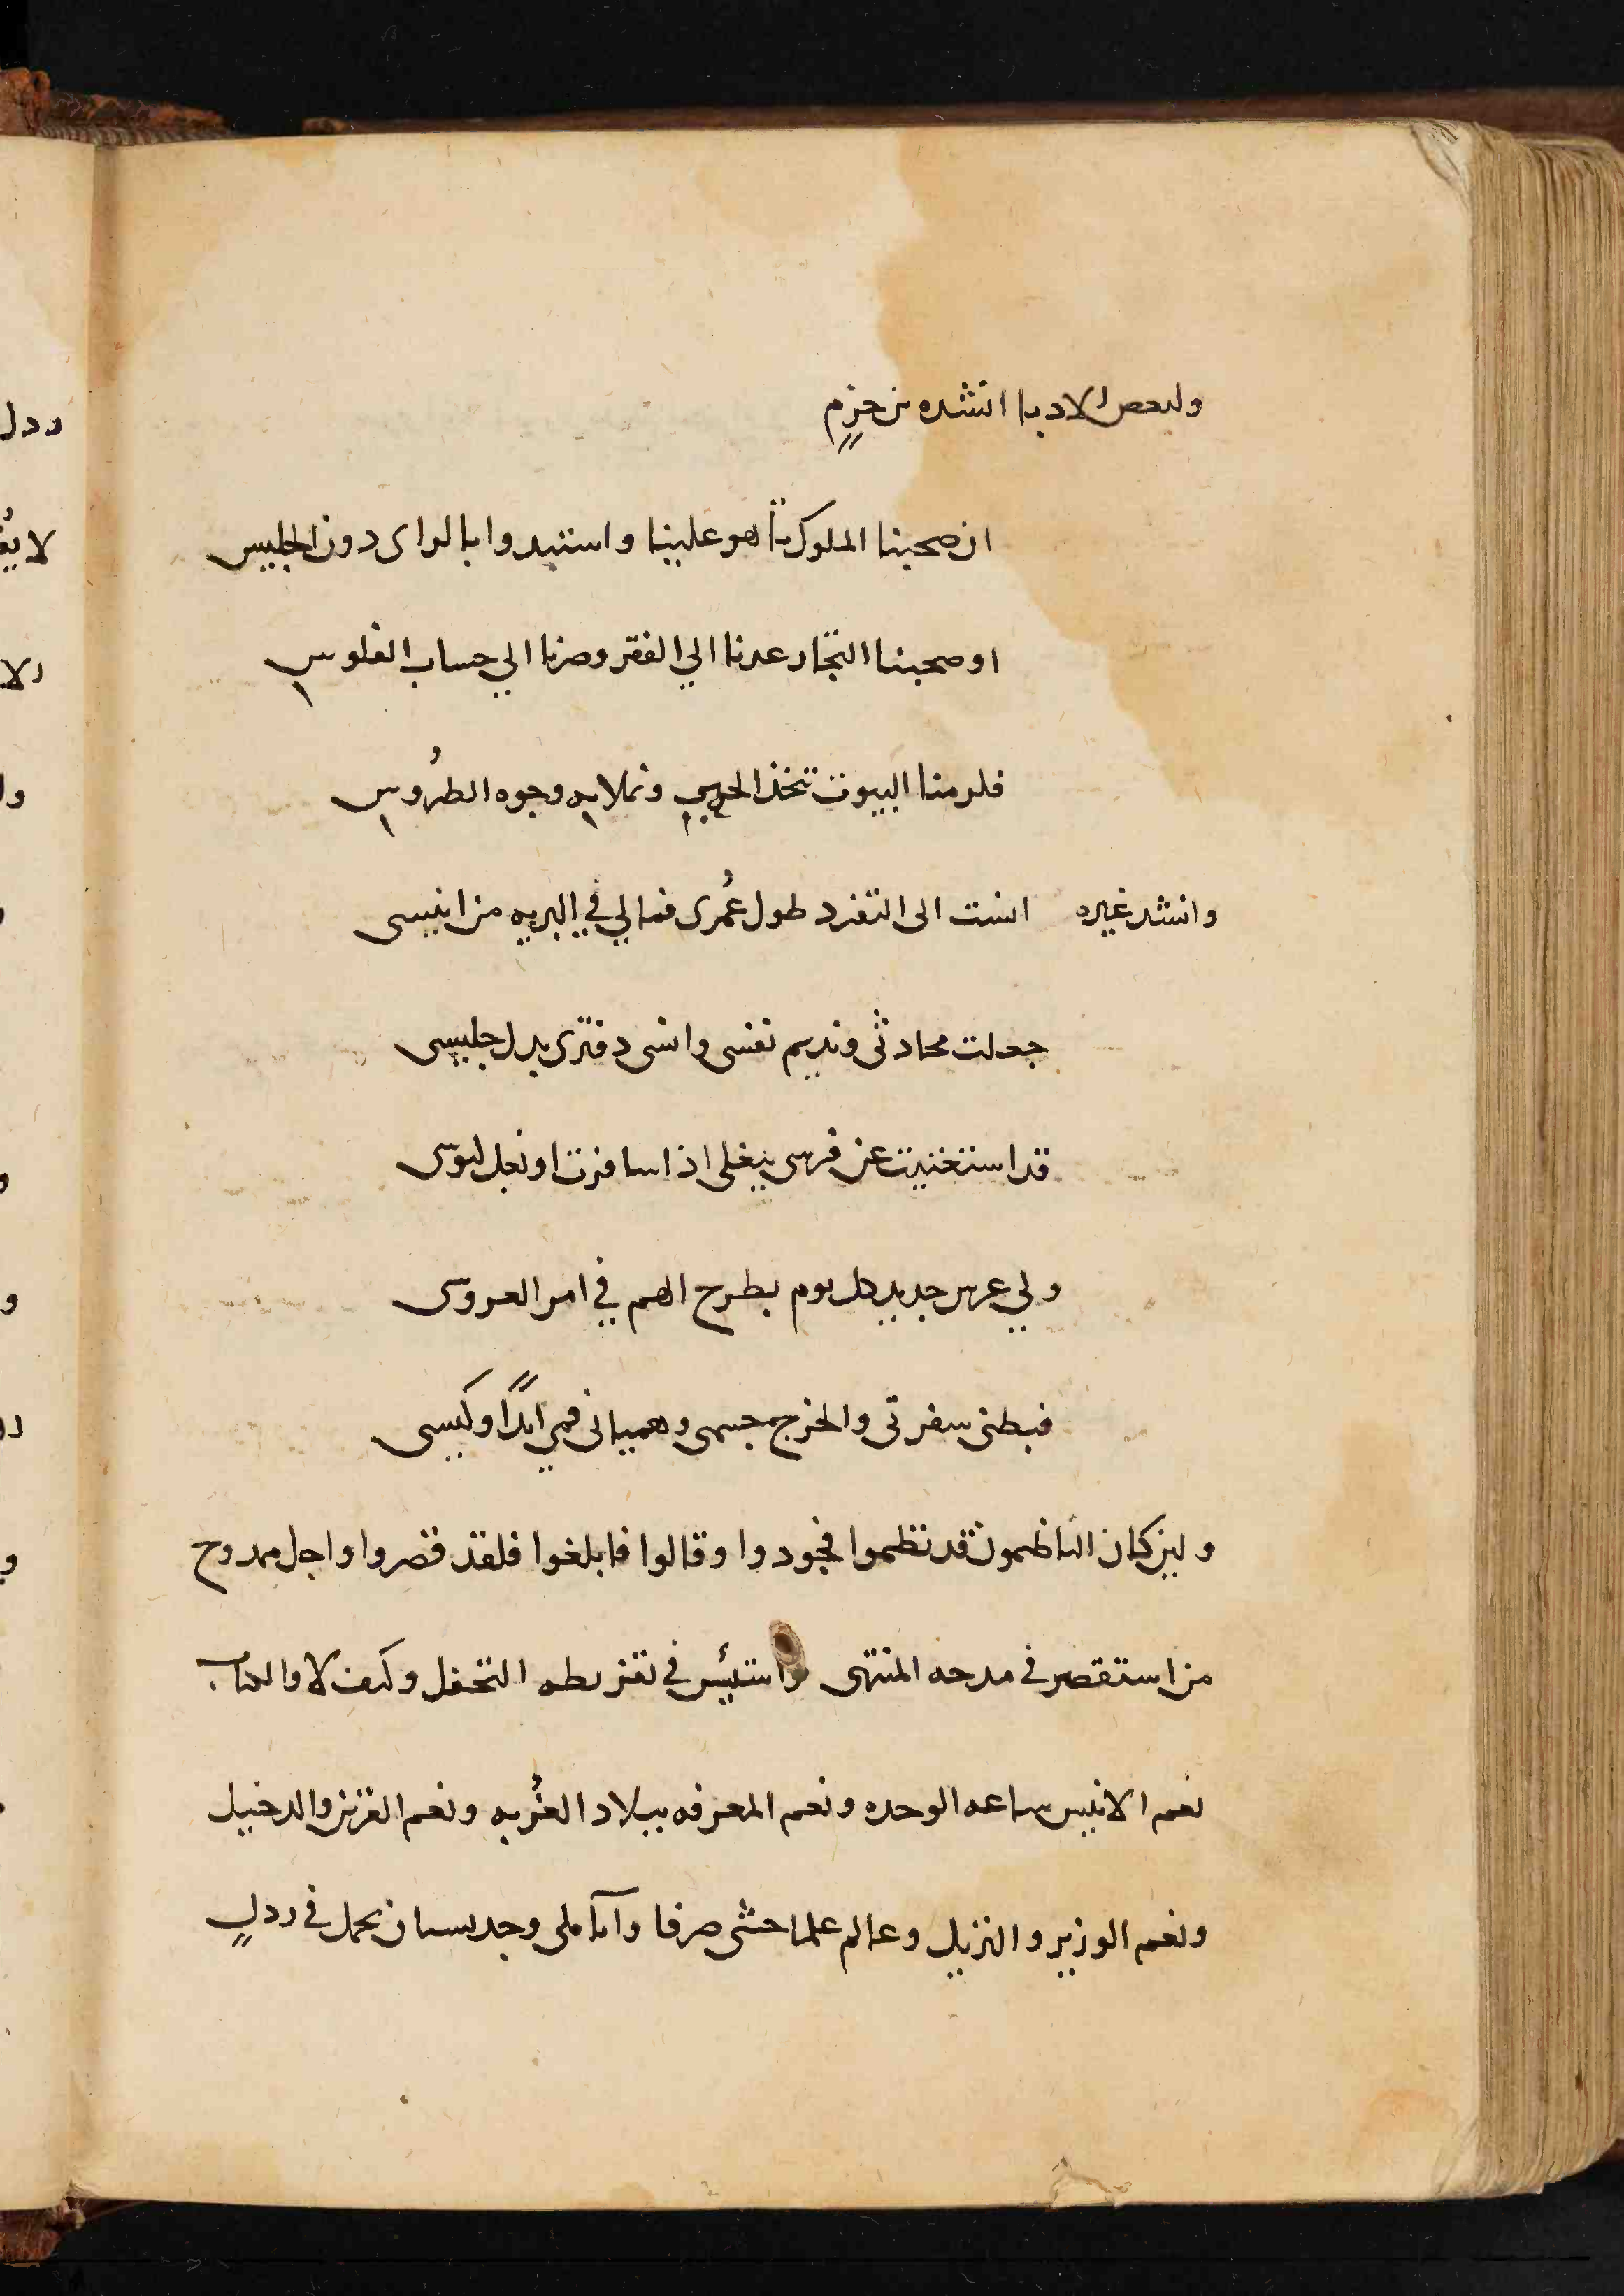 ولبعض الادبا انشده بن حزم
ان صحبنا الملوك تاهو علينا واستبدوا بالراى دون الجليس
او صحبنا التجار عدنا الي الفقر وصرنا الي حساب الفلوس
فلزمنا البيوت نتخذ الحبر ونملا به وجوه الطروس
وانشد غيره انست الى التفرد طول عُمرى فمالي في البريه من انيسى
جعلت محادثى ونديم نفسى وانسى دفترى بدل جليسى
قد استغنيت عن فرسى ببغلى اذا سافرت او نعل لبوسى
ولي عرس جديد كل يوم بطرح الهم في امر العروسى
فبطنى سفرتى والخرج جسمى وهميانى فمي ابدًا وكيسى
ولين كان الناظمون قد نظموا فجودوا وقالوا فابلغوا فلقد قصروا واجل ممدوح
من استقصر في مدحه المنتهى واستيئس في تقريظه التحفل وكيف لا والكتاب
نعم الانيس ساعه الوحده ونعم المعرفه ببلاد الغُربه ونعم القرين والدخيل
ونعم الوزير والنزيل وعالم علما حشى صرفا واناملى وجد بستان يحمل في ردل